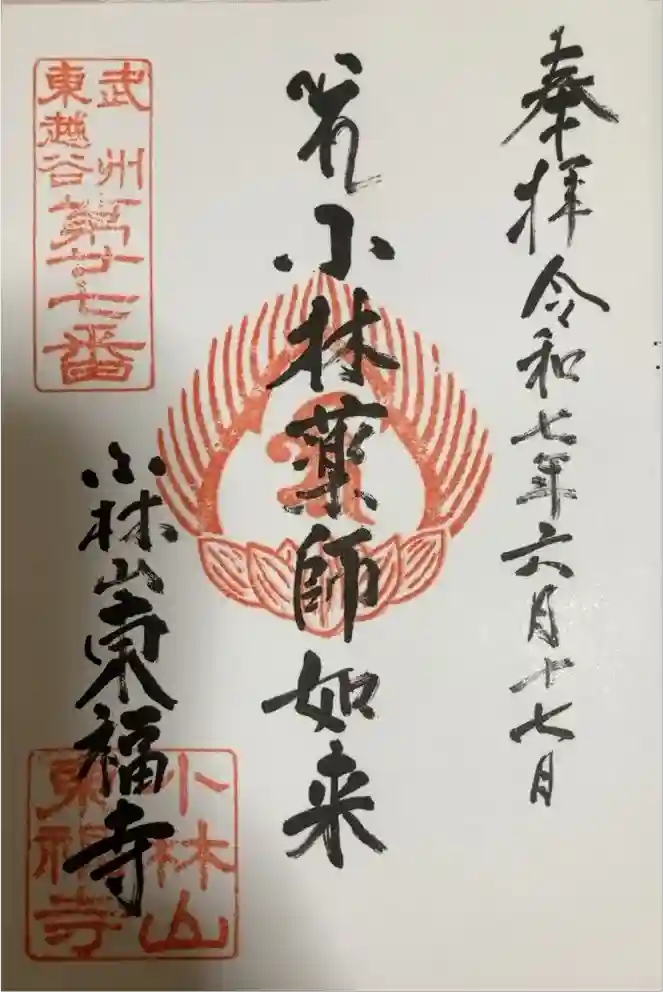 奉拝 令和七年六月十七日
小林薬師如来
武州
東越谷
第廿七番
小林山東福寺
小林山
東福寺